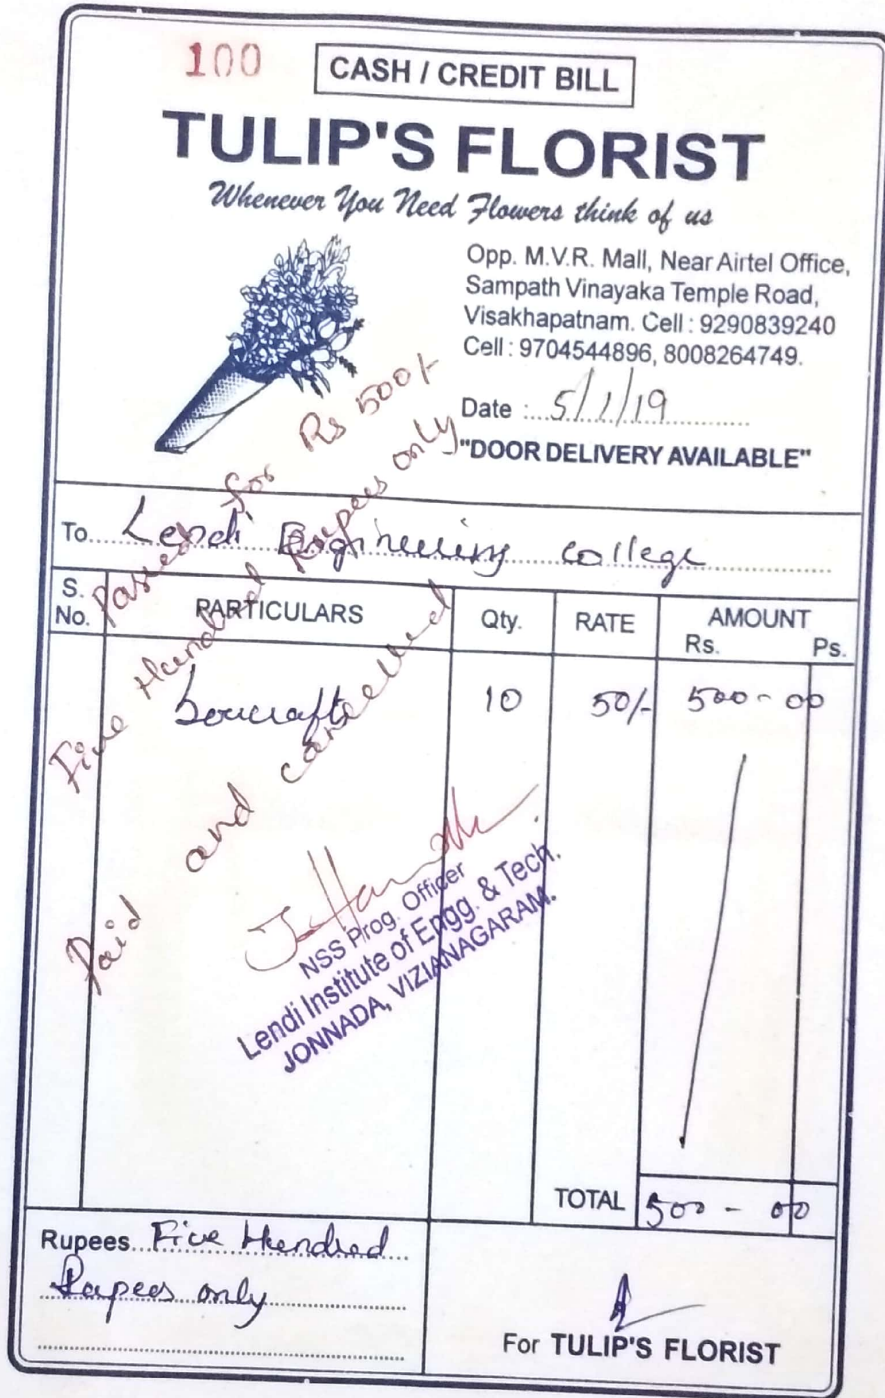 100
CASH / CREDIT BILL
TULIP'S FLORIST
Whenever You Need Flowers think of us
Opp. M.V.R. Mall, Near Airtel Office,
Sampath Vinayaka Temple Road,
Visakhapatnam. Cell : 9290839240
Cell : 9704544896, 8008264749.
Date : 5/1/19
"DOOR DELIVERY AVAILABLE"
To Lendi Engineering college
S. No. PARTICULARS Qty. RATE AMOUNT Rs. Ps.
10 50/- 500-00
Passed for Rs 500/-
Five Hundred Rupees only
Paid and cancelled
NSS Prog. Officer
Lendi Institute of Engg. & Tech.
JONNADA, VIZIANAGARAM.
TOTAL 500 - 00
Rupees Five Hundred
Rupees only
For TULIP'S FLORIST